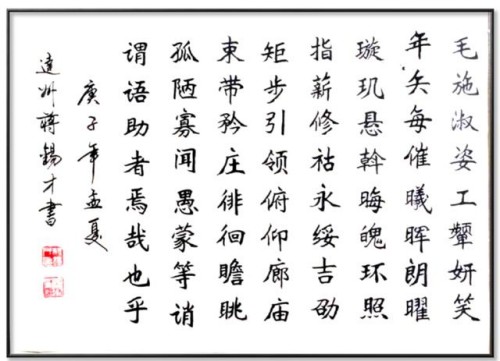 毛施淑姿工颦妍笑
年矢每催曦晖朗曜
璇玑悬斡晦魄环照
指薪修祜永绥吉劭
矩步引领俯仰廊庙
束带矜庄徘徊瞻眺
孤陋寡闻愚蒙等诮
谓语助者焉哉也乎
庚子年孟夏
達州蒋錫才書